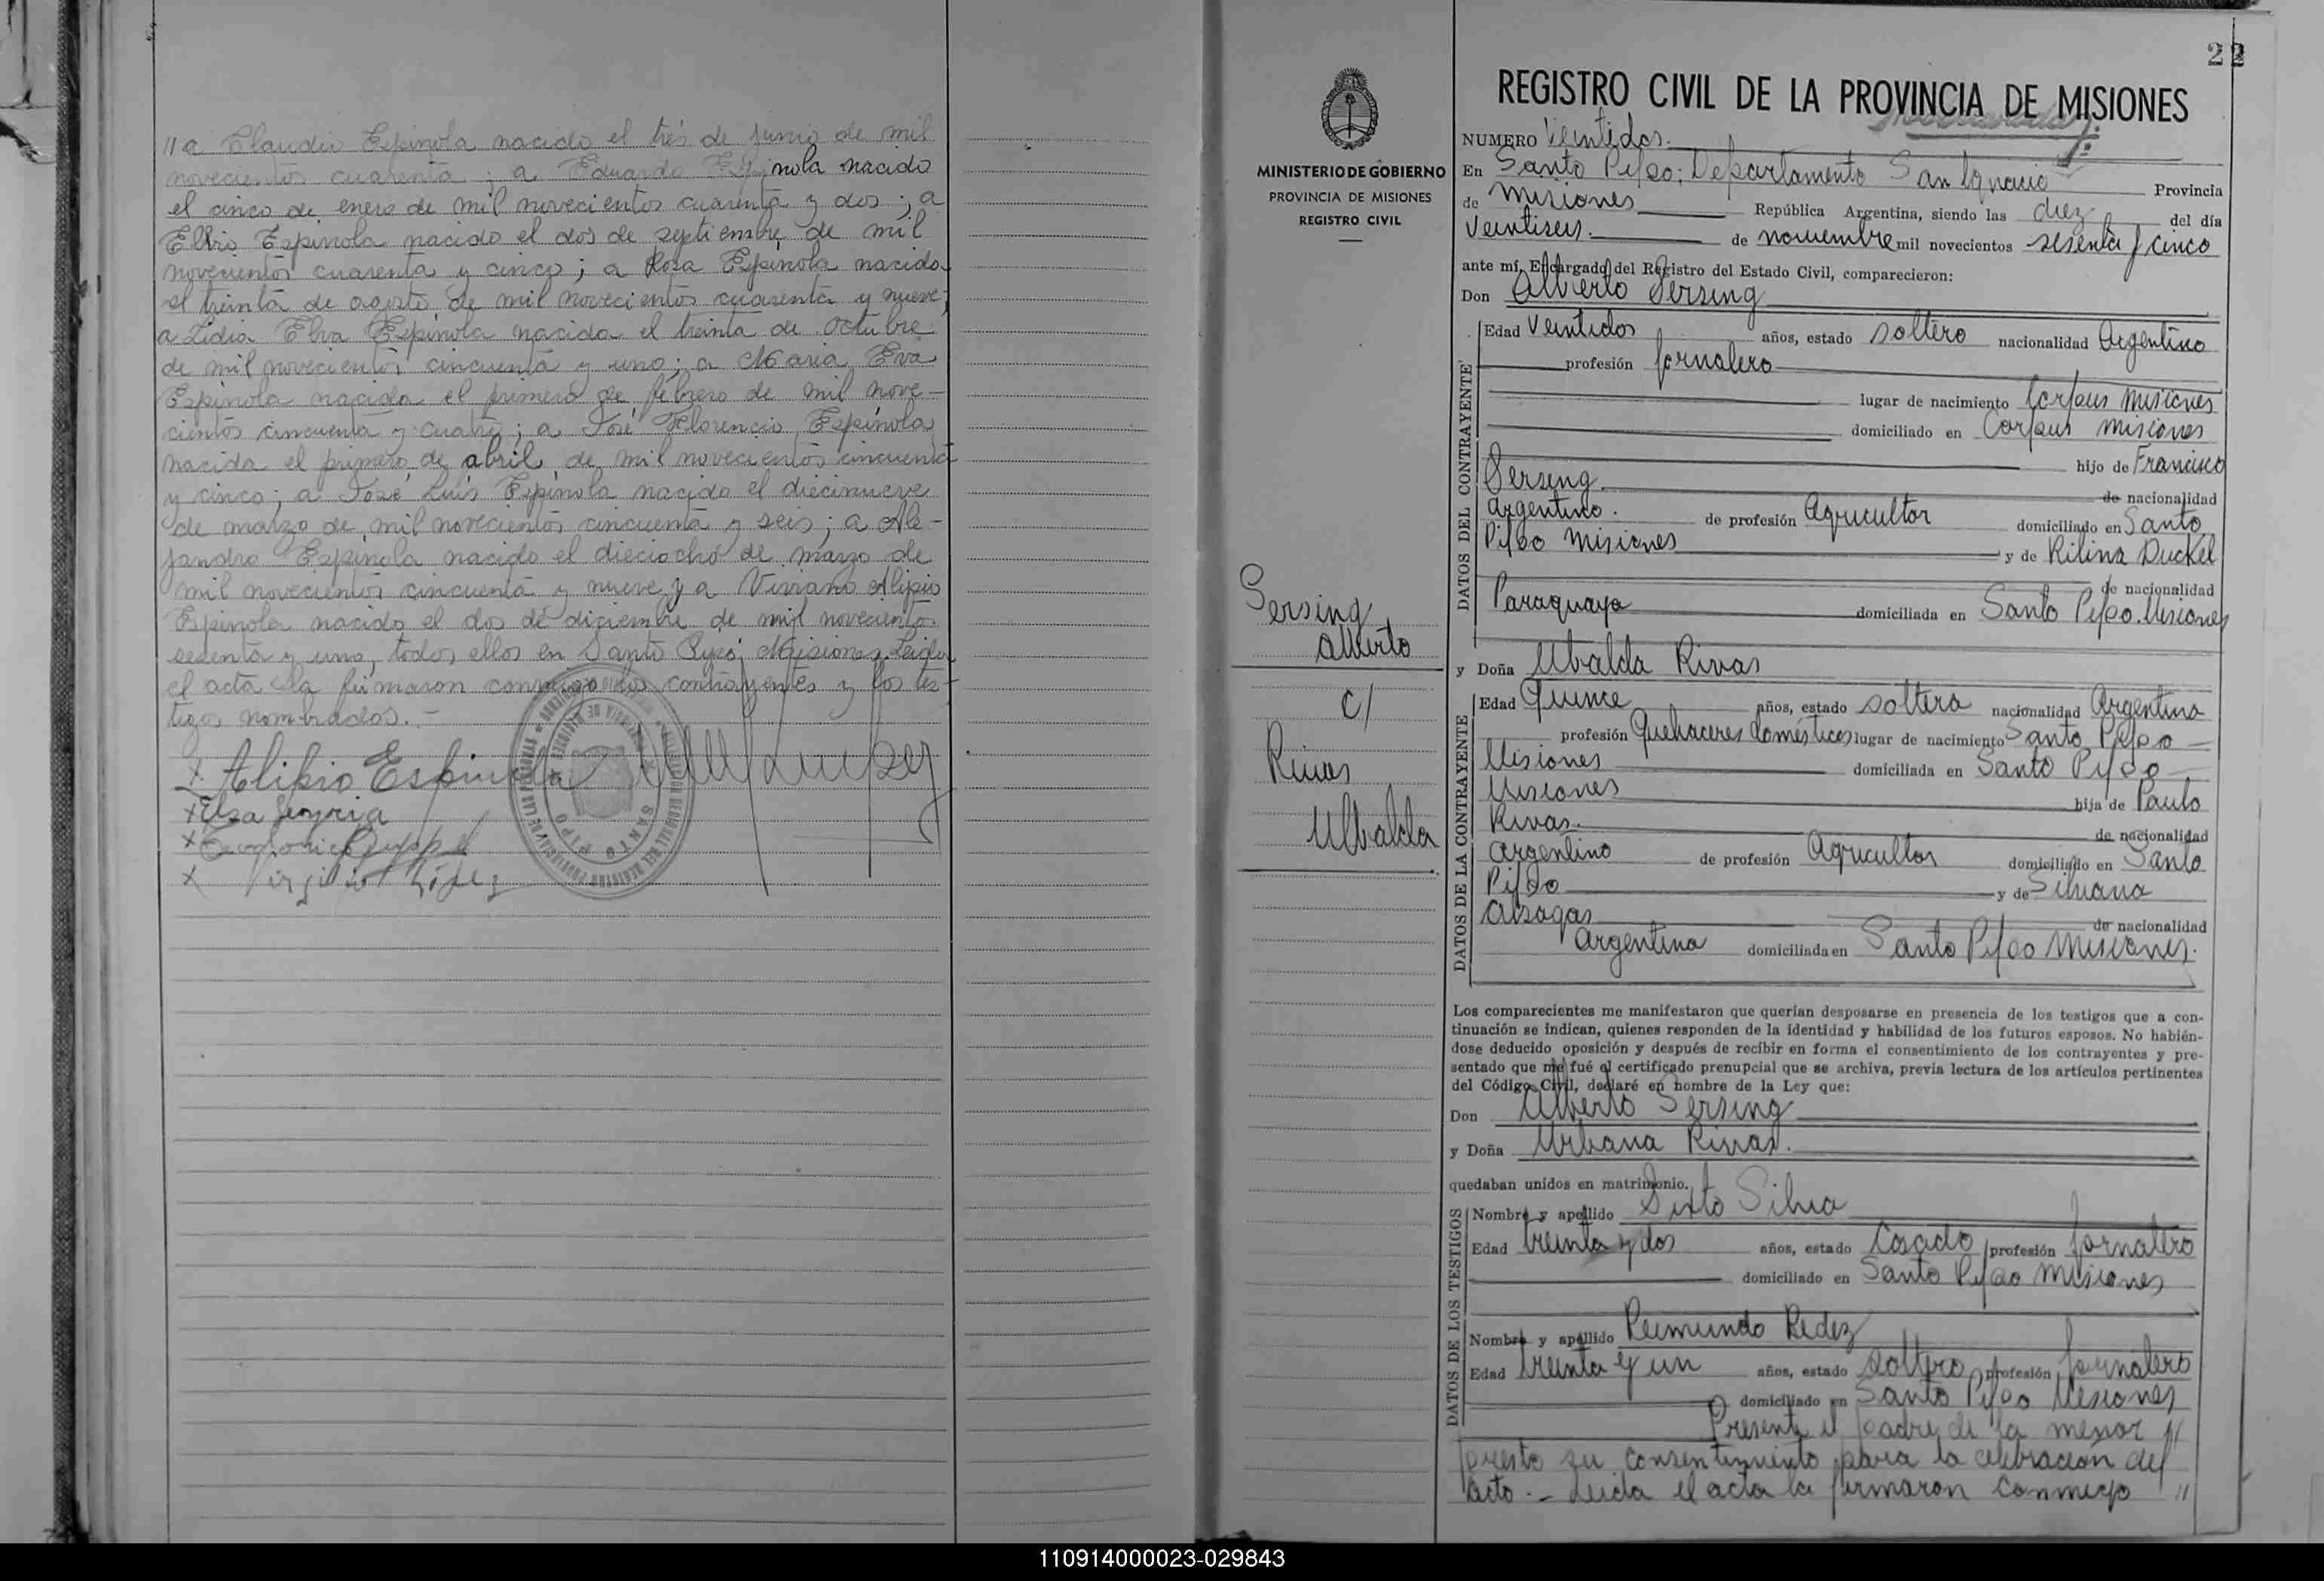 //a Claudio Espinola nacido el tres de junio de mil
novecientos cuarenta ; a Eduardo Espinola nacido
el cinco de enero de mil novecientos cuarenta y dos ; a
Espinola nacido el dos de septiembre de mil
novecientos cuarenta y cinco ; a Rosa Espinola nacida
el treinta de agosto de mil novecientos cuarenta y nueve ;
a Lidia Elva Espinola nacida el treinta de octubre
de mil novecientos cincuenta y uno ; a Maria Eva
Espinola nacida el primero de febrero de mil nove-
cientos cincuenta y cuatro ; a José Florencio Espinola
nacida el primero de abril de mil novecientos cincuenta
y cinco ; a José Luis Espinola nacido el diecinueve
de marzo de mil novecientos cincuenta y seis ; a Ale-
jandro Espinola nacido el dieciocho de marzo de
mil novecientos cincuenta y nueve y a Viviano Alipio
Espinola nacido el dos de diciembre de mil novecientos
sesenta y uno, todos ellos en Santo Pipó, Misiones. Leida
el acta la firmaron conmigo los contrayentes y los tes-
tigos nombrados. -
x Alipio Espinola
x Elsa
x
x Virgilio López
SANTO PIPO
MINISTERIO DE GOBIERNO
PROVINCIA DE MISIONES
REGISTRO CIVIL
Sersing
Alberto
c/
Rivas
Ubalda
22
REGISTRO CIVIL DE LA PROVINCIA DE MISIONES
NUMERO Veintidos.
En Santo Pipo; Departamento San Ignacio Provincia
de Misiones República Argentina, siendo las diez del día
Veintiseis. de noviembre mil novecientos sesenta y cinco
ante mí, Encargado del Registro del Estado Civil, comparecieron:
Don Alberto Sersing
DATOS DEL CONTRAYENTE
Edad Veintidos años, estado soltero nacionalidad Argentino
profesión Jornalero
lugar de nacimiento Corpus Misiones
domiciliado en Corpus Misiones
hijo de Francisco
Sersing. de nacionalidad
argentino. de profesión Agricultor domiciliado en Santo
Pipo Misiones y de Rilina Duckel
de nacionalidad
Paraguaya domiciliada en Santo Pipo. Misiones
y Doña Ubalda Rivas
DATOS DE LA CONTRAYENTE
Edad Quince años, estado soltera nacionalidad Argentina
profesión Quehaceres domésticos lugar de nacimiento Santo Pipo
Misiones domiciliada en Santo Pipo
Misiones hija de Paulo
Rivas. de nacionalidad
argentino de profesión Agricultor domiciliado en Santo
Pipo y de Silvana
de nacionalidad
argentina domiciliada en Santo Pipo Misiones.
Los comparecientes me manifestaron que querían desposarse en presencia de los testigos que a con-
tinuación se indican, quienes responden de la identidad y habilidad de los futuros esposos. No habién-
dose deducido oposición y después de recibir en forma el consentimiento de los contrayentes y pre-
sentado que me fué el certificado prenupcial que se archiva, previa lectura de los artículos pertinentes
del Código Civil, declaré en nombre de la Ley que:
Don Alberto Sersing
y Doña Urbana Rivas.
quedaban unidos en matrimonio.
DATOS DE LOS TESTIGOS
Nombre y apellido Sixto Silva
Edad treinta y dos años, estado Casado profesión Jornalero
domiciliado en Santo Pipo Misiones
Nombre y apellido Reimundo Redez
Edad treinta y un años, estado soltero profesión Jornalero
domiciliado en Santo Pipo Misiones
Presente el padre de la menor //
presto su consentimiento para la celebracion del
acto. - Leida el acta la firmaron conmigo //
110914000023-029843